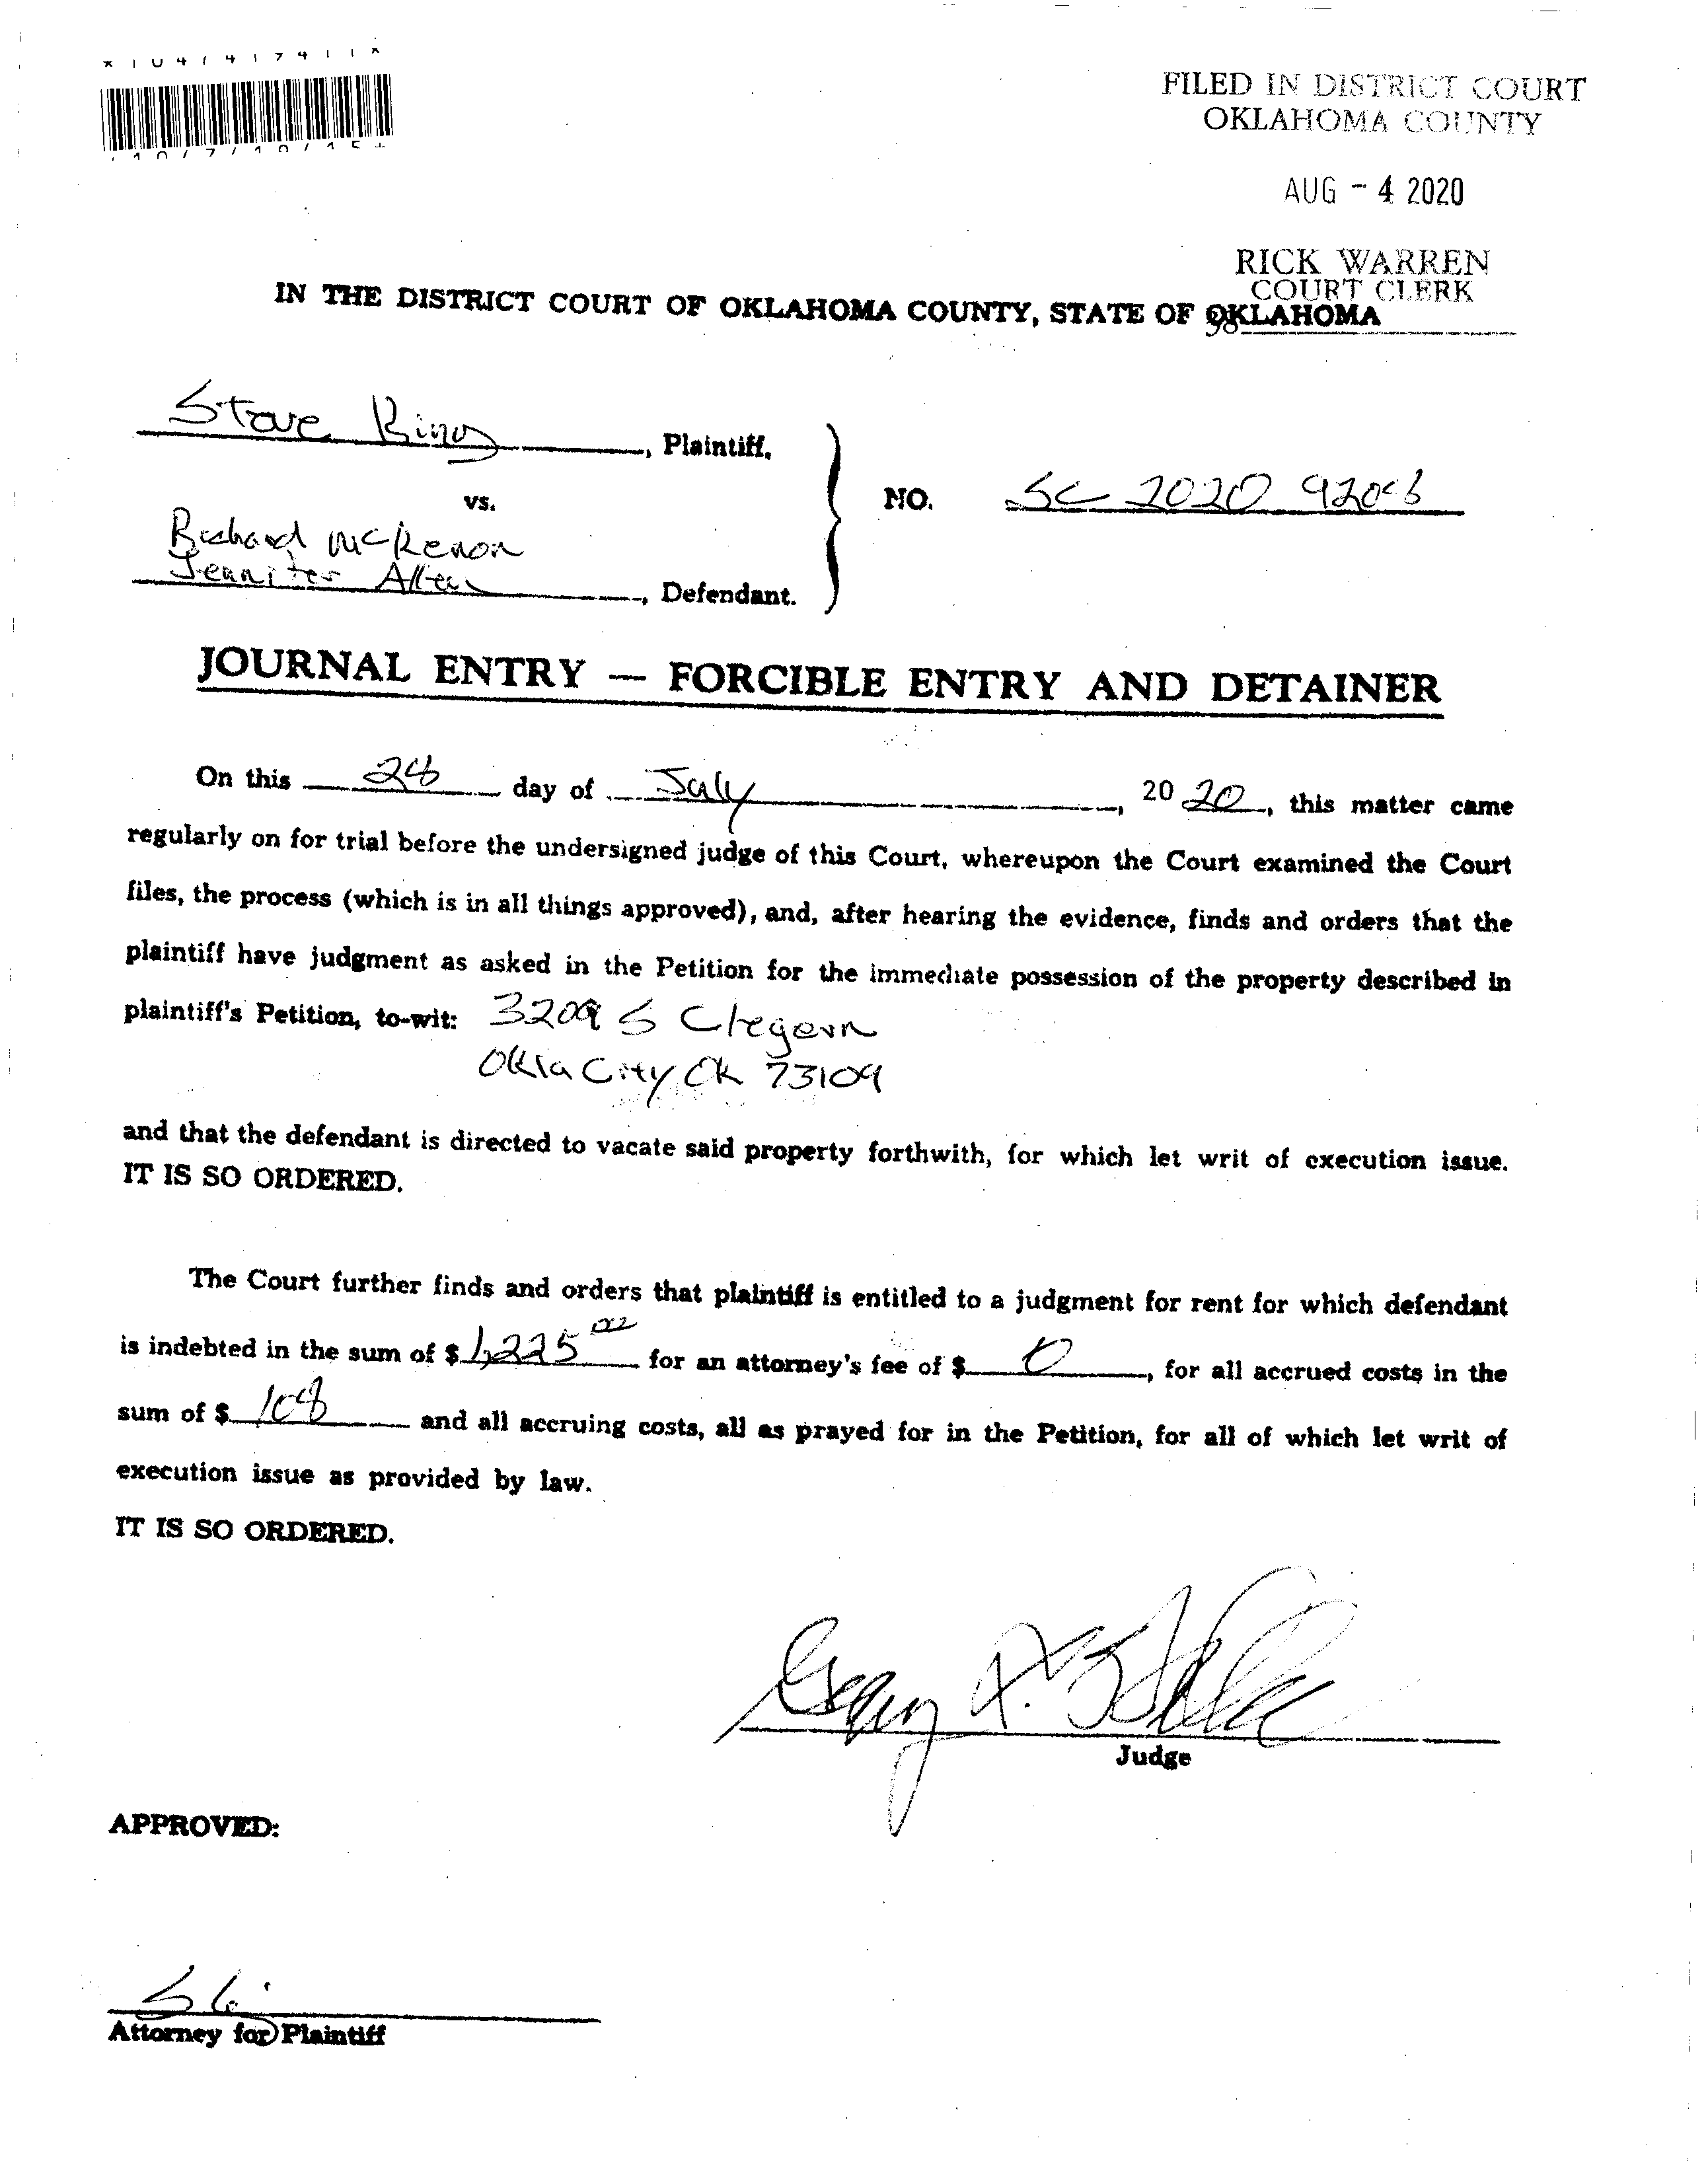 FILED IN DISTRICT COURT
OKLAHOMA COUNTY
AUG - 4 2020
RICK WARREN
COURT CLERK
98
IN THE DISTRICT COURT OF OKLAHOMA COUNTY, STATE OF OKLAHOMA
Steve King, Plaintiff,
vs.
NO. SC 2020
Richard McKenon
Jennifer Allen, Defendant.
JOURNAL ENTRY — FORCIBLE ENTRY AND DETAINER
On this 28 day of July, 20 20, this matter came
regularly on for trial before the undersigned judge of this Court, whereupon the Court examined the Court
files, the process (which is in all things approved), and, after hearing the evidence, finds and orders that the
plaintiff have judgment as asked in the Petition for the immediate possession of the property described in
plaintiff's Petition, to-wit: 3209 S Clegern
Okla City, Ok 73109
and that the defendant is directed to vacate said property forthwith, for which let writ of execution issue.
IT IS SO ORDERED.
The Court further finds and orders that plaintiff is entitled to a judgment for rent for which defendant
is indebted in the sum of $ 1,225 00 for an attorney's fee of $ 0, for all accrued costs in the
sum of $ 108 and all accruing costs, all as prayed for in the Petition, for all of which let writ of
execution issue as provided by law.
IT IS SO ORDERED.
Judge
APPROVED:
Attorney for Plaintiff